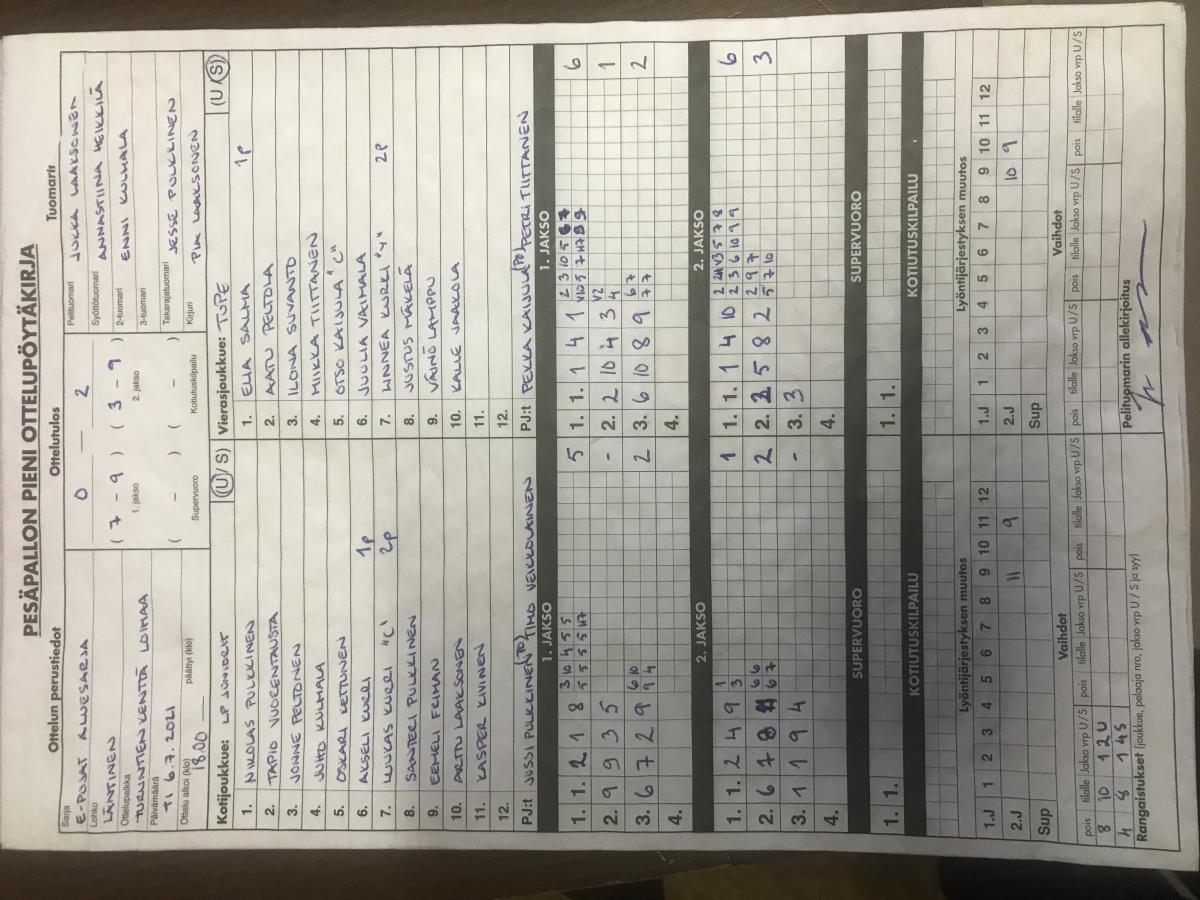 PESÄPALLON PIENI OTTELUPÖYTÄKIRJA
Ottelun perustiedot
Sarja
E-POJAT ALUESARJA
Lohko
LÄNTINEN
Ottelupaikka
TURUNTIEN KENTTÄ LOIMAA
Päivämäärä
TI 6.7.2021
Ottelu alkoi (klo) päättyi (klo)
18.00
Ottelutulos
0 — 2
( 7 - 9 ) ( 3 - 9 )
1. jakso 2. jakso
( - ) ( - )
Supervuoro Kotiutuskilpailu
Tuomarit
Pelituomari JUKKA LAAKSONEN
Syöttötuomari ANNASTIINA HEIKKILÄ
2-tuomari ENNI KULMALA
3-tuomari
Takarajatuomari JESSE PULKKINEN
Kirjuri PIA LAAKSONEN
Kotijoukkue: LP JUNIORIT (U / S)
1. NIKOLAS PULKKINEN
2. TAPIO VUORENTAUSTA
3. JONNE PELTONEN
4. JUHO KULMALA
5. OSKARI KETTUNEN
6. AKSELI KURRI 1P
7. LUUKAS KURRI "C" 2P
8. SANTERI PULKKINEN
9. EEMELI FRIMAN
10. ARTTU LAAKSONEN
11. KASPER KIVINEN
12.
PJ:t JUSSI PULKKINEN (PO) TIMO VEIKKOLAINEN
Vierasjoukkue: TUPE (U / S)
1. ELIA SALMIA 1P
2. AATU PELTOLA
3. ILONA SUVANTO
4. MIIKKA TIITTANEN
5. OTSO KAIJULA "C"
6. JUULIA VAIMALA
7. LINNEA KURKI "Y" 2P
8. JUSTUS MÄKELÄ
9. VÄINÖ LAMPPU
10. KALLE JAAKOLA
11.
12.
PJ:t PEKKA KAIJULA (PO) PETRI TIITTANEN
1. JAKSO
1. 1. 2 1 8 3 10 4 5 5 5
5 5 5 5 H7
2. 9 3 5 -
3. 6 7 2 9 6 10 2
9 4
4.
1. JAKSO
1. 1. 1 4 1 2 3 10 5 6 7 6
V10 5 7 H7 8 9
2. 2 10 4 3 V2 1
4
3. 6 10 8 9 6 7 2
7 7
4.
2. JAKSO
1. 1. 2 4 9 1 1
3
2. 6 7 8 6 6 2
6 7
3. 1 1 9 4 -
4.
2. JAKSO
1. 1. 1 4 10 2 2H V3 5 7 8 6
2 3 6 10 9 9
2. 2 5 8 2 2 9 7 3
5 7 10
3. - 3
4.
SUPERVUORO
1. 1.
SUPERVUORO
1. 1.
KOTIUTUSKILPAILU
KOTIUTUSKILPAILU
Lyöntijärjestyksen muutos
1.J 1 2 3 4 5 6 7 8 9 10 11 12
2.J 11 9
Sup
Lyöntijärjestyksen muutos
1.J 1 2 3 4 5 6 7 8 9 10 11 12
2.J 10 9
Sup
Vaihdot
pois tilalle Jakso vrp U / S pois tilalle Jakso vrp U / S pois tilalle Jakso vrp U / S
8 10 1 2U
4 8 1 4S
Vaihdot
pois tilalle Jakso vrp U / S pois tilalle Jakso vrp U / S pois tilalle Jakso vrp U / S
Rangaistukset (joukkue, pelaaja nro, jakso vrp U / S ja syy)
Pelituomarin allekirjoitus